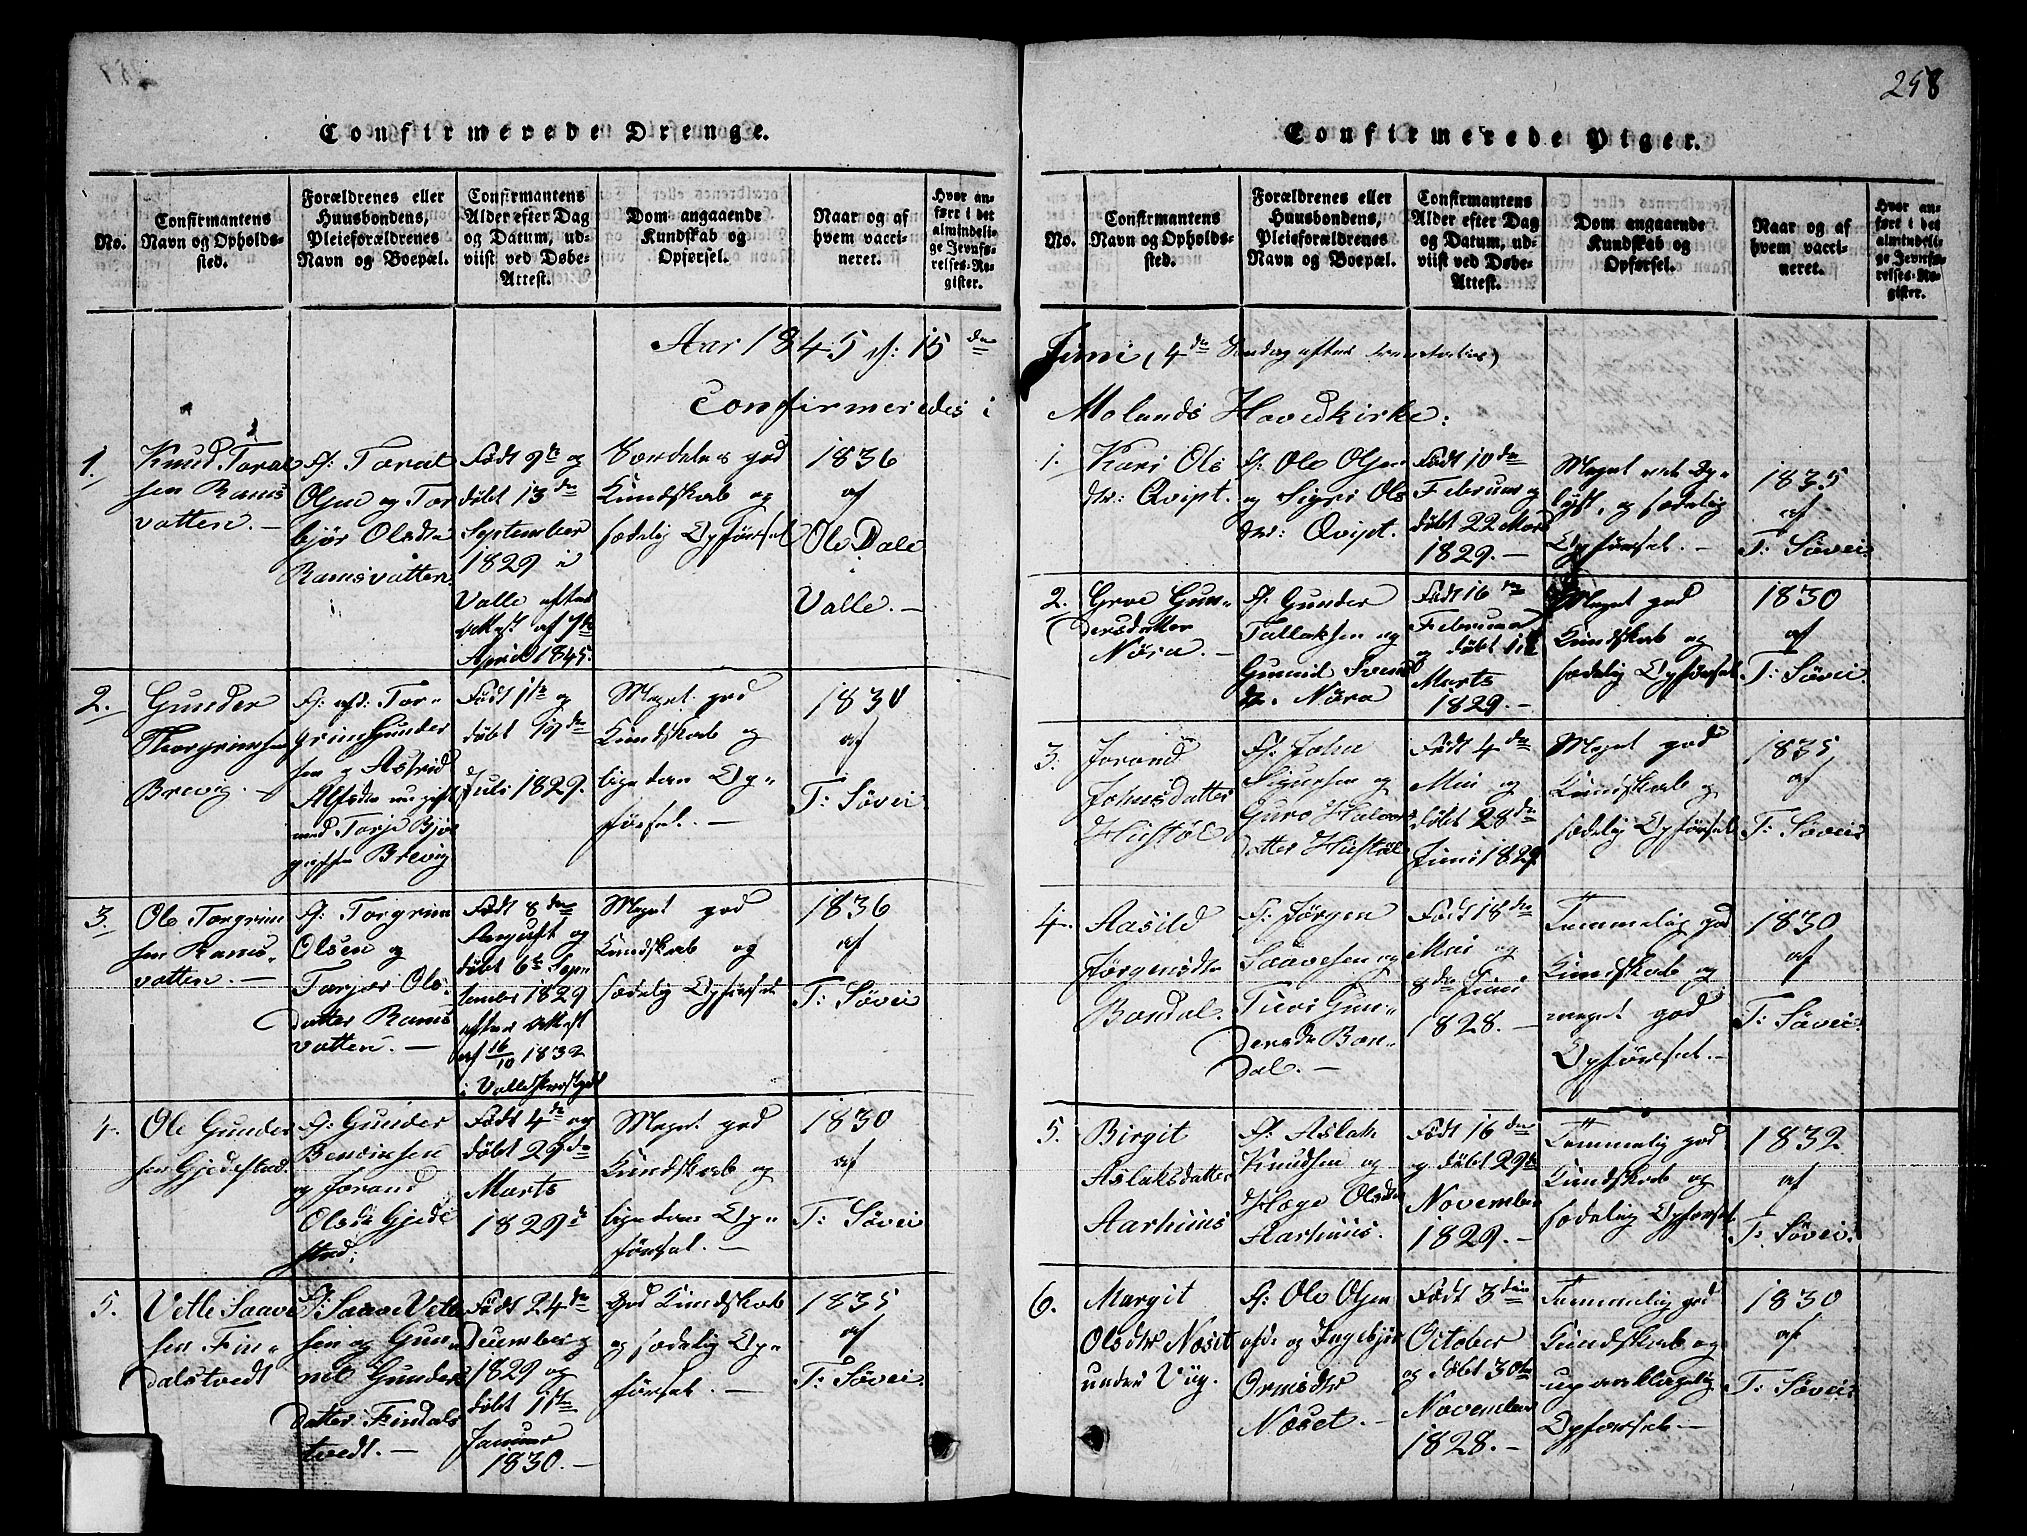 258
Confirmerede Drenge.
No.
Confirmantens
Navn og Opholds-
sted.
Forældrenes eller
Huusbondens,
Pleieforældrenes
Navn og Boepæl.
Confirmantens
Alder efter Dag
og Datum, ud-
viist ved Døbe-
Attest.
Dom angaaende
Kundskab og
Opførsel.
Naar og af
hvem vacci-
neret.
Hvor an-
ført i det
almindeli-
ge Jevnfø-
relses-Re-
gister.
Aar 1845 d: 15 de
Confirmeredes i
1.
Knud Toral
sen Rams
vatten. —
F: Toral
Olsen og Tor
bjør Olsdtr
Ramsvatten.
Født 9de og
døbt 13 de
September
1829 i
Valle efter
Attest af 7de
April 1845.
Særdeles god
Kundskab og
sædelig Opførsel
1836
af
Ole Dale
i
Valle. —
2.
Gunder
Thorgrimsen
Brevig. —
F: afd: Tor-
grim Gunder
sen og Astrid
Alfsdtr nu gift
med Torje Bjør
Brevig
Født 1te og
døbt 19 de
Juli 1829.
Meget god
Kundskab og
ligedan Op-
førsel. —
1830
af
T: Søvei.
3.
Ole Torgrim
sen Rams-
vatten. —
F: Torgrim
Olsen og
Torjør Ols-
datter Rams
vatten. —
Født 8 de
August og
døbt 6te Sep-
tember 1829
efter Attest
af 16/10 1832
i Valle Præstegjeld
Meget god
Kundskab og
sædelig Opførsel
1836
af
T: Søvei
4.
Ole Gunder
sen Gjedestad.
F: Gunder
Bendixsen
og Jorand
Olsdtr Gjede
stad:
Født 4 de og
døbt 29 de
Marts
1829
Meget god
Kundskab og
ligedan Op-
førsel. —
1830
af
T: Søvei
5.
Vetle Saave
sen Fin-
dalstvedt
F: Saave Vetle
sen og Gun-
nil Gunders
datter Findals
tvedt. —
Født 24 de
December
1829 og
døbt 1te
Januar
1830. —
God Kundskab
og sædelig Op-
førsel. —
1835
af
T: Søvei.
Confirmerede Piger.
No.
Confirmantens
Navn og Opholds-
sted.
Forældrenes eller
Huusbondens,
Pleieforældrenes
Navn og Boepæl.
Confirmantens
Alder efter Dag
og Datum, ud-
viist ved Døbe-
Attest.
Dom angaaende
Kundskab og
Opførsel.
Naar og af
hvem vacci-
neret.
Hvor an-
ført i det
almindeli-
ge Jevnfø-
relses-Re-
gister.
Juni (4 de Søndag efter Trinitatis)
Molands Hovedkirke:
1.
Kari Ols
dtr: Qvipt.
F: Ole Olsen
og Sigri Ols
dtr: Qvipt.
Født 10 de
Februar og
døbt 22 Mars
1829. —
Meget vel Op-
lyst, og sædelig
Opførsel. —
1835
af
T: Søvei.
2.
Groe Gun-
dersdatter
Nøra. —
F: Gunder
Tallaksen og
Gunnil Svends
dtr. Nøra
Født 16 de
Februar
og døbt 1te
Marts
1829. —
Meget god
Kundskab og
sædelig Opførsel
1830
af
T: Søvei.
3.
Jorand
Johnsdatter
Hustøl
F: John
Sigursen og
Guro Halvors
datter Hustøl
Født 4 de
Mai og
døbt 28 de
Juni 1829
Meget god
Kundskab og
sædelig Opførsel
1835
af
T: Søvei
4.
Aasild
Jørgensdtr
Bondal.
F: Jørgen
Saavesen og
Turi Gun-
dersdtr Bon-
dal. —
Født 18 de
Mai og
8 de Juni
1828. —
Temmelig god
Kundskab og
meget god
Opførsel. —
1830
af
T: Søvei.
5.
Birgit
Aslaksdatter
Aarhuus
F: Aslak
Knudsen og
Hæge Olsdtr
Aarhuus.
Født 16 de
og døbt 29de
November
1829. —
Temmelig god
Kundskab og
sædelig Opførsel
1832
af
T: Søvei.
6.
Margit
Olsdtr Næset
under Vög.
F: Ole Olsen
afd: og Ingebjør
Ormsdtr
Næset. —
Født 3 die
October
og døbt 30te
November
1828. —
Temmelig god
Kundskab og
upaaklagelig
Opførsel. —
1830
af
T: Søvei